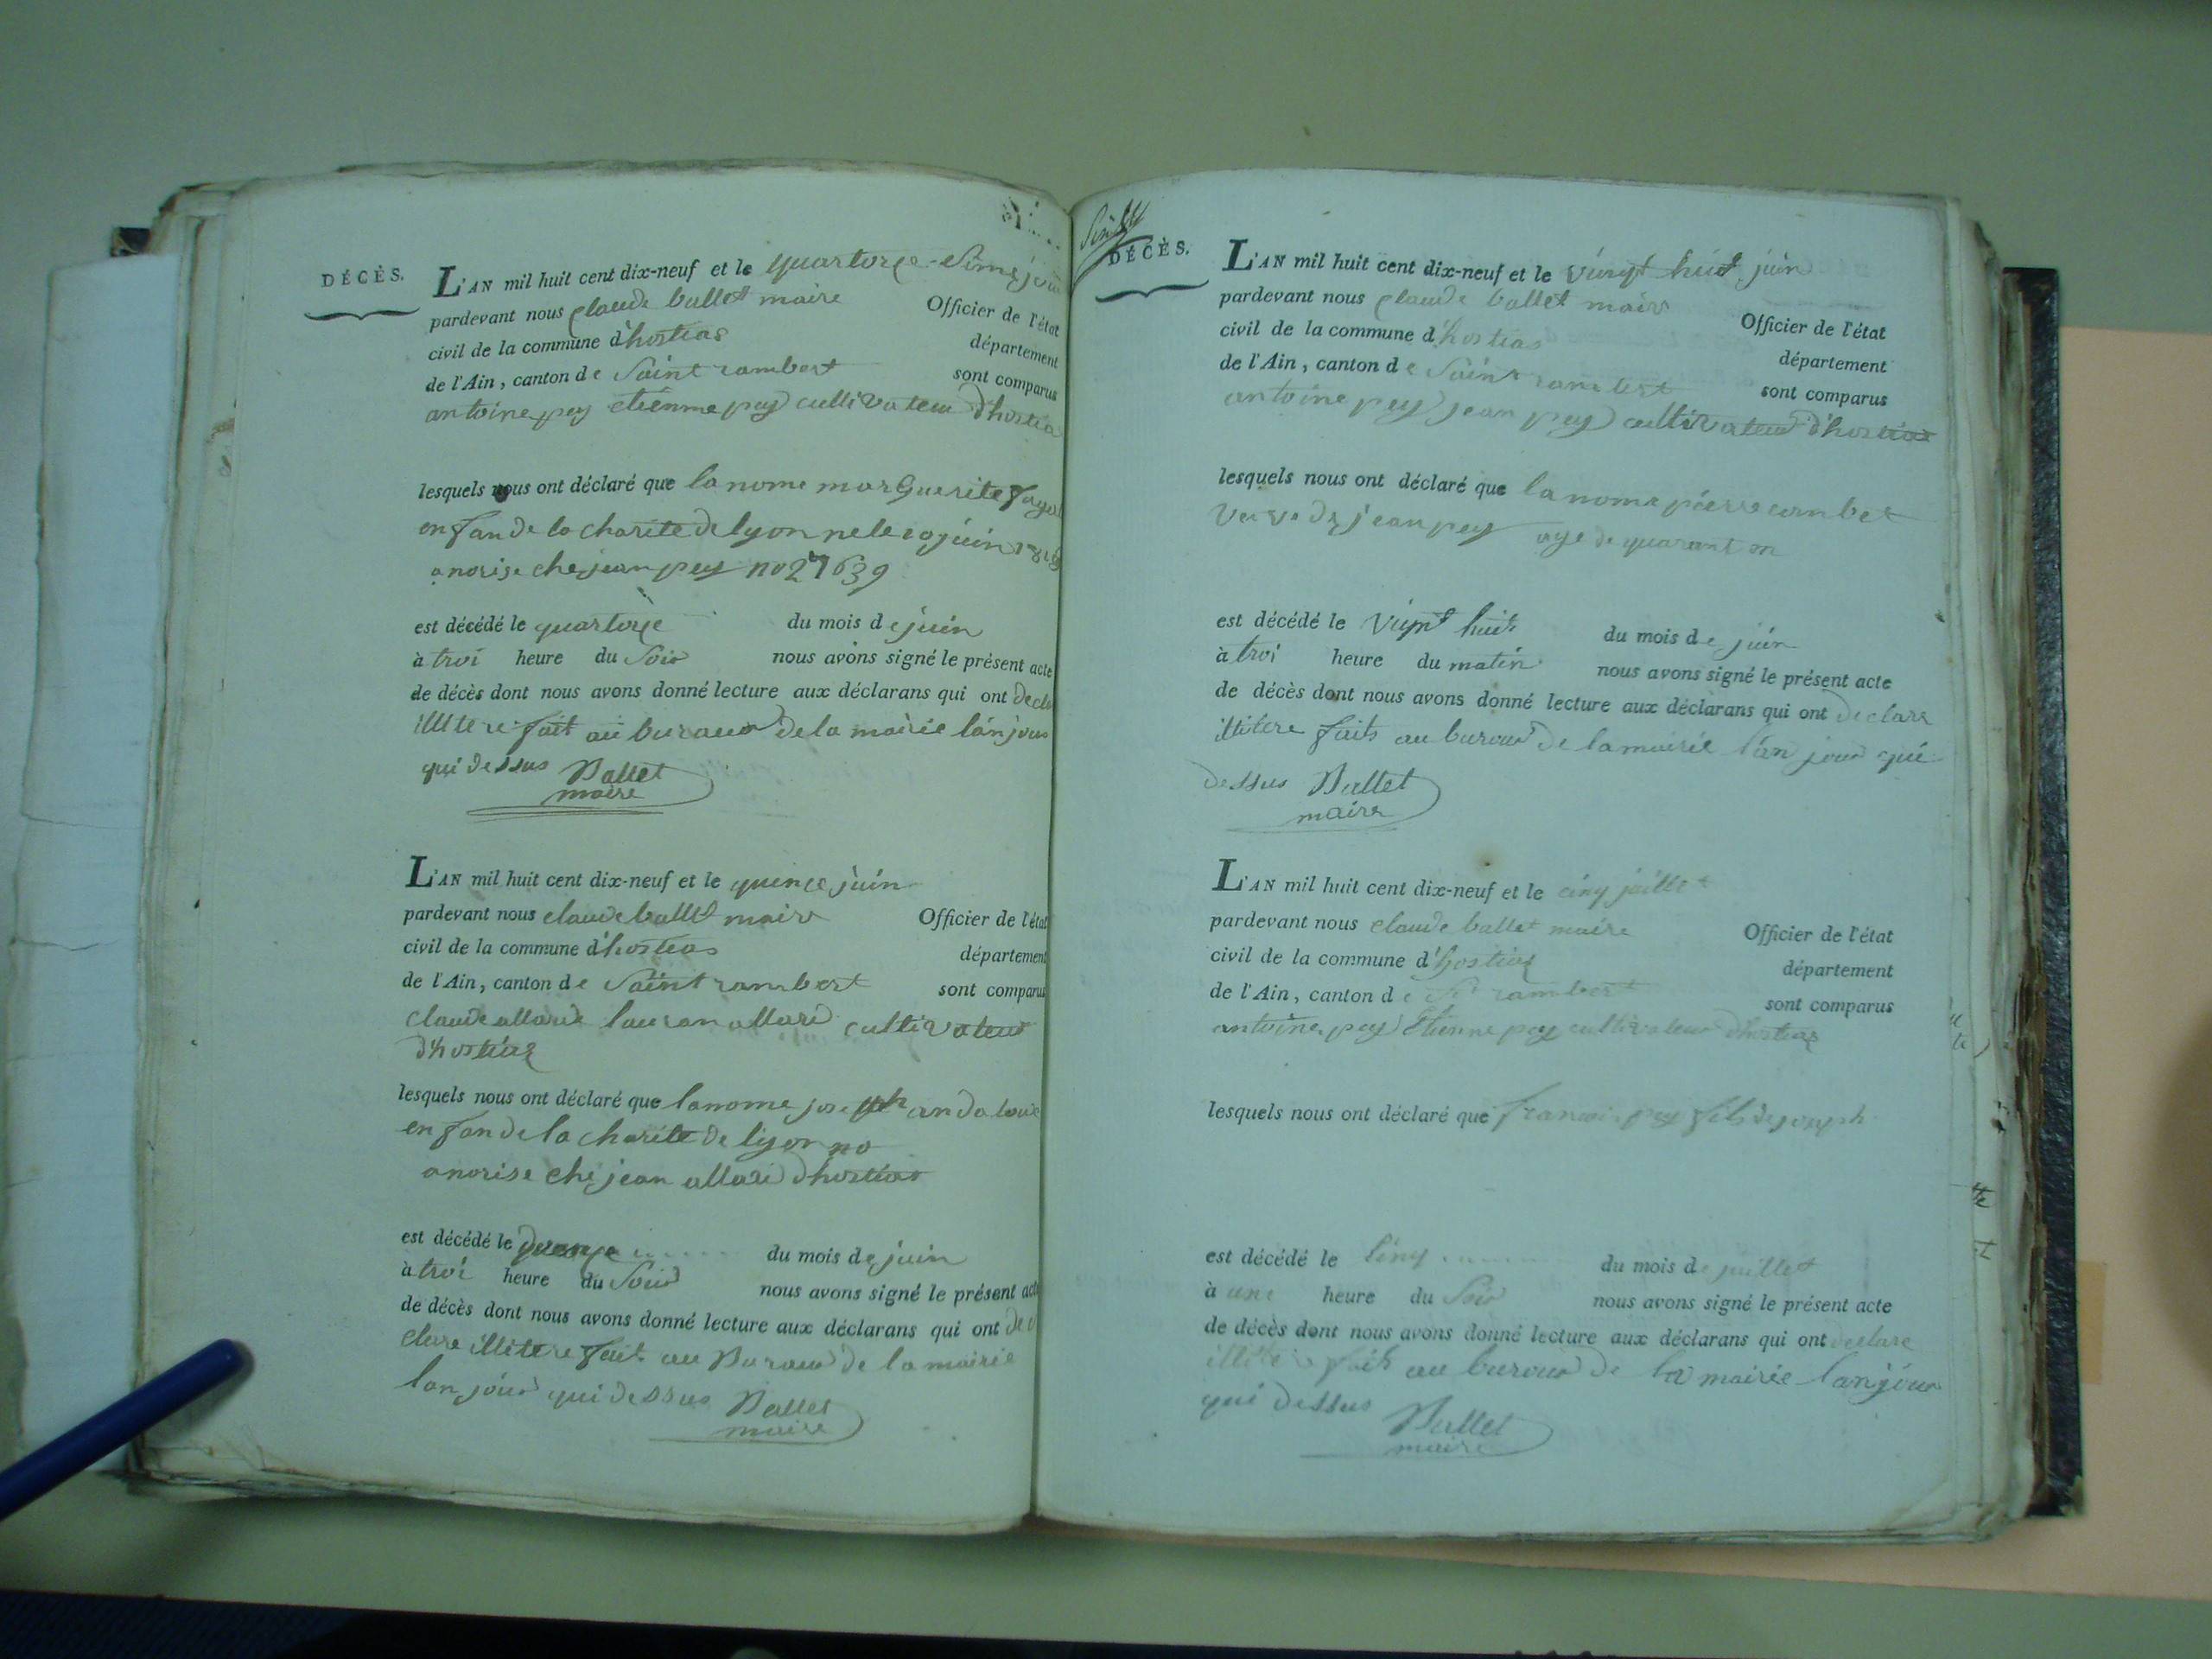 DÉCÈS.
L'AN mil huit cent dix-neuf et le quartorze
pardevant nous claude ballet maire Officier de l'état
civil de la commune d'hostias département
de l'Ain, canton de Saint rambert sont comparus
antoine pey etienne pey cultivateur d'hostia
lesquels nous ont déclaré que la nome marguerite
enfan de la charite de lyon ne le juin
a norise che jean pey no 27639
est décédé le quartorze du mois de juin
à troi heure du Soir nous avons signé le présent acte
de décès dont nous avons donné lecture aux déclarans qui ont decla
illitere fait au buraux de la mairie lan jour
qui dessus Ballet
maire
L'AN mil huit cent dix-neuf et le quinze juin
pardevant nous claude ballet maire Officier de l'état
civil de la commune d'hostias département
de l'Ain, canton de Saint rambert sont comparus
claude allard lauran allard cultivateur
d'hostiaz
lesquels nous ont déclaré que la nome joseph
enfan de la charite de liyon no
a norise che jean allard d'hostias
est décédé le du mois de juin
à troi heure du Soir nous avons signé le présent acte
de décès dont nous avons donné lecture aux déclarans qui ont de
clare illitere fait au Buraux de la mairie
lan jour qui dessus Ballet
maire
DÉCÈS.
L'AN mil huit cent dix-neuf et le vingt huit juin
pardevant nous claude ballet maire Officier de l'état
civil de la commune d'hostias département
de l'Ain, canton de Saint rambert sont comparus
antoine pey jean pey cultivateur d'hostias
lesquels nous ont déclaré que la nome pierre
de jean pey age de quarant
est décédé le vingt huit du mois de juin
à troi heure du matin nous avons signé le présent acte
de décès dont nous avons donné lecture aux déclarans qui ont declare
illitere fait au buraux de la mairie lan jour qui
dessus Ballet
maire
L'AN mil huit cent dix-neuf et le cinq juillet
pardevant nous claude ballet maire Officier de l'état
civil de la commune d'hostiaz département
de l'Ain, canton de St rambert sont comparus
antoine pey Etienne pey cultivateur d'hostiaz
lesquels nous ont déclaré que francois pey fils de joseph
est décédé le cinq du mois de juillet
à une heure du Soir nous avons signé le présent acte
de décès dont nous avons donné lecture aux déclarans qui ont declare
illitere fait au buraux de la mairie lan jour
qui dessus Ballet
maire